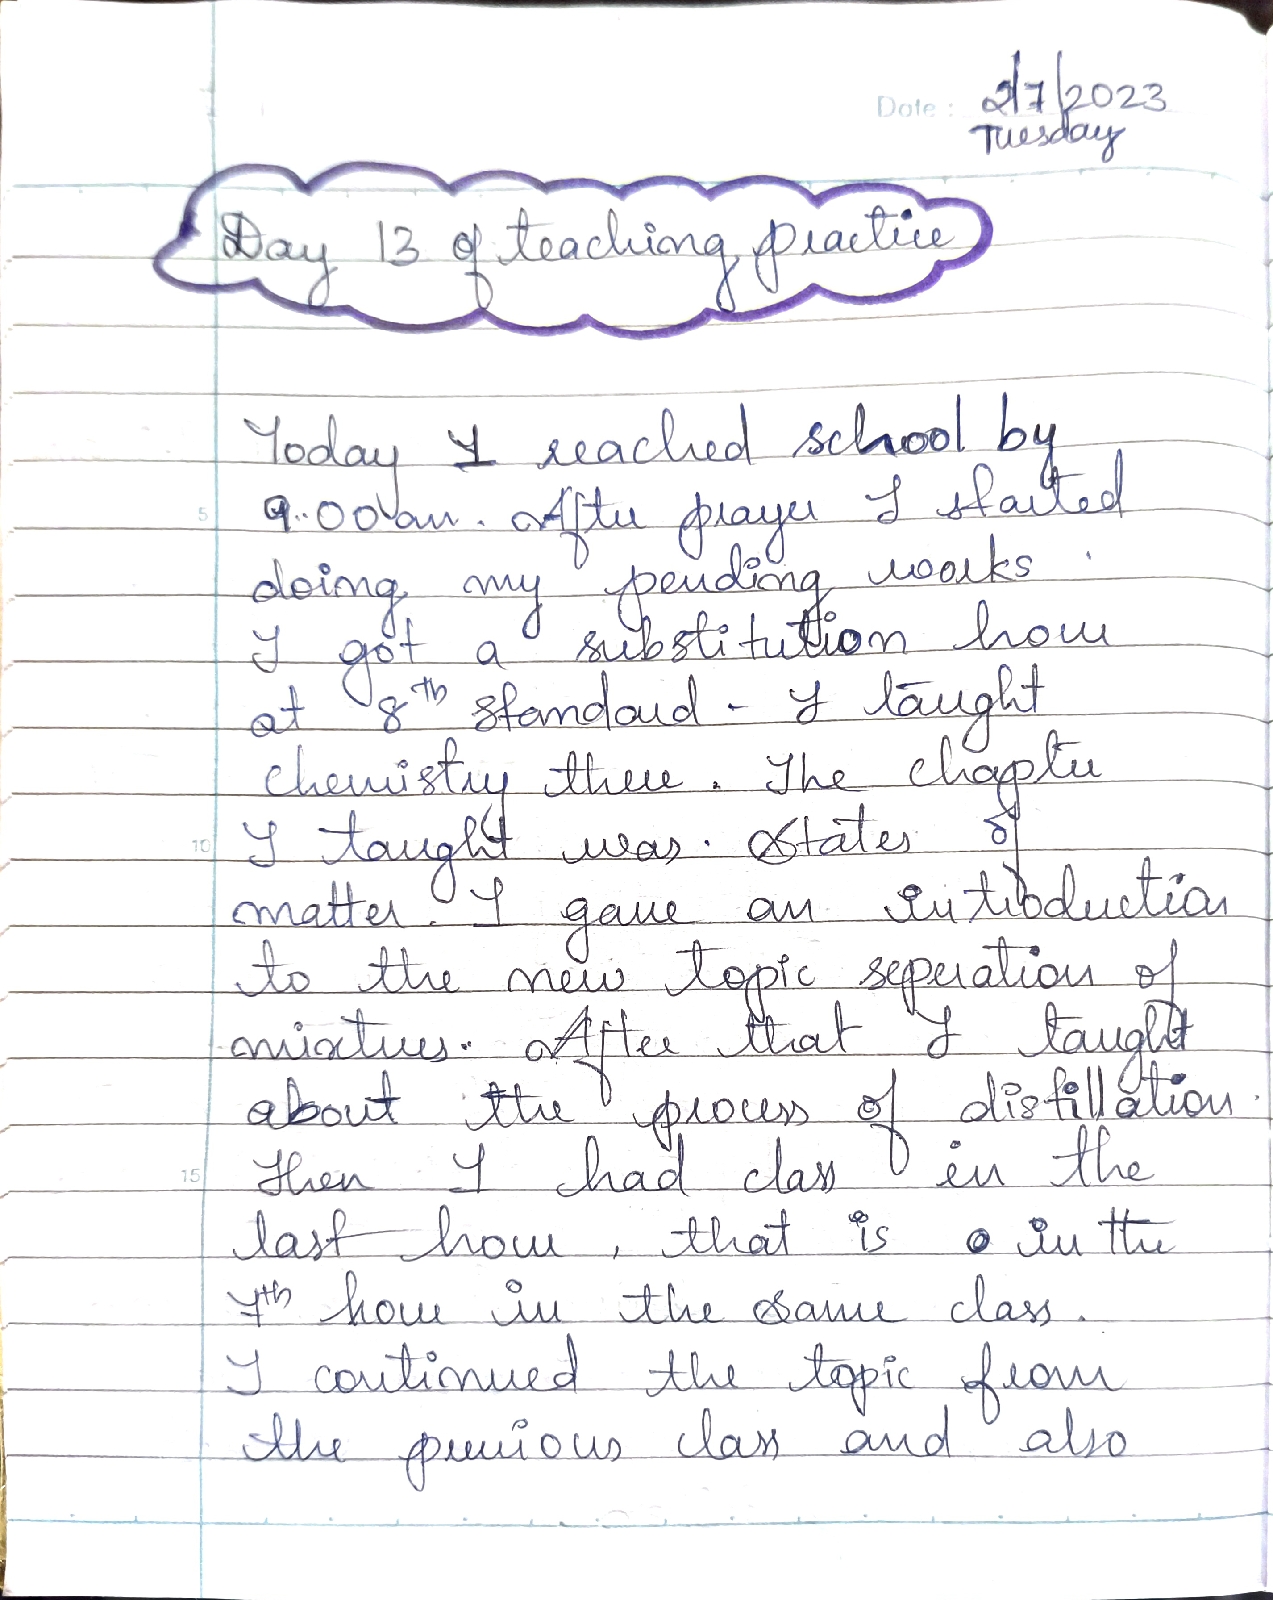 Date : 2/7/2023
Tuesday
Day 13 of teaching practice
Today I reached school by
5 9.00 am. After prayer I started
doing my pending works.
I got a substitution hour
at 8th standard - I taught
chemistry there. The chapter
10 I taught was. States of
matter. I gave an introduction
to the new topic seperation of
mixtures. After that I taught
about the process of distillation.
15 Then I had class in the
last hour, that is in the
7th hour in the same class.
I continued the topic from
the previous class and also